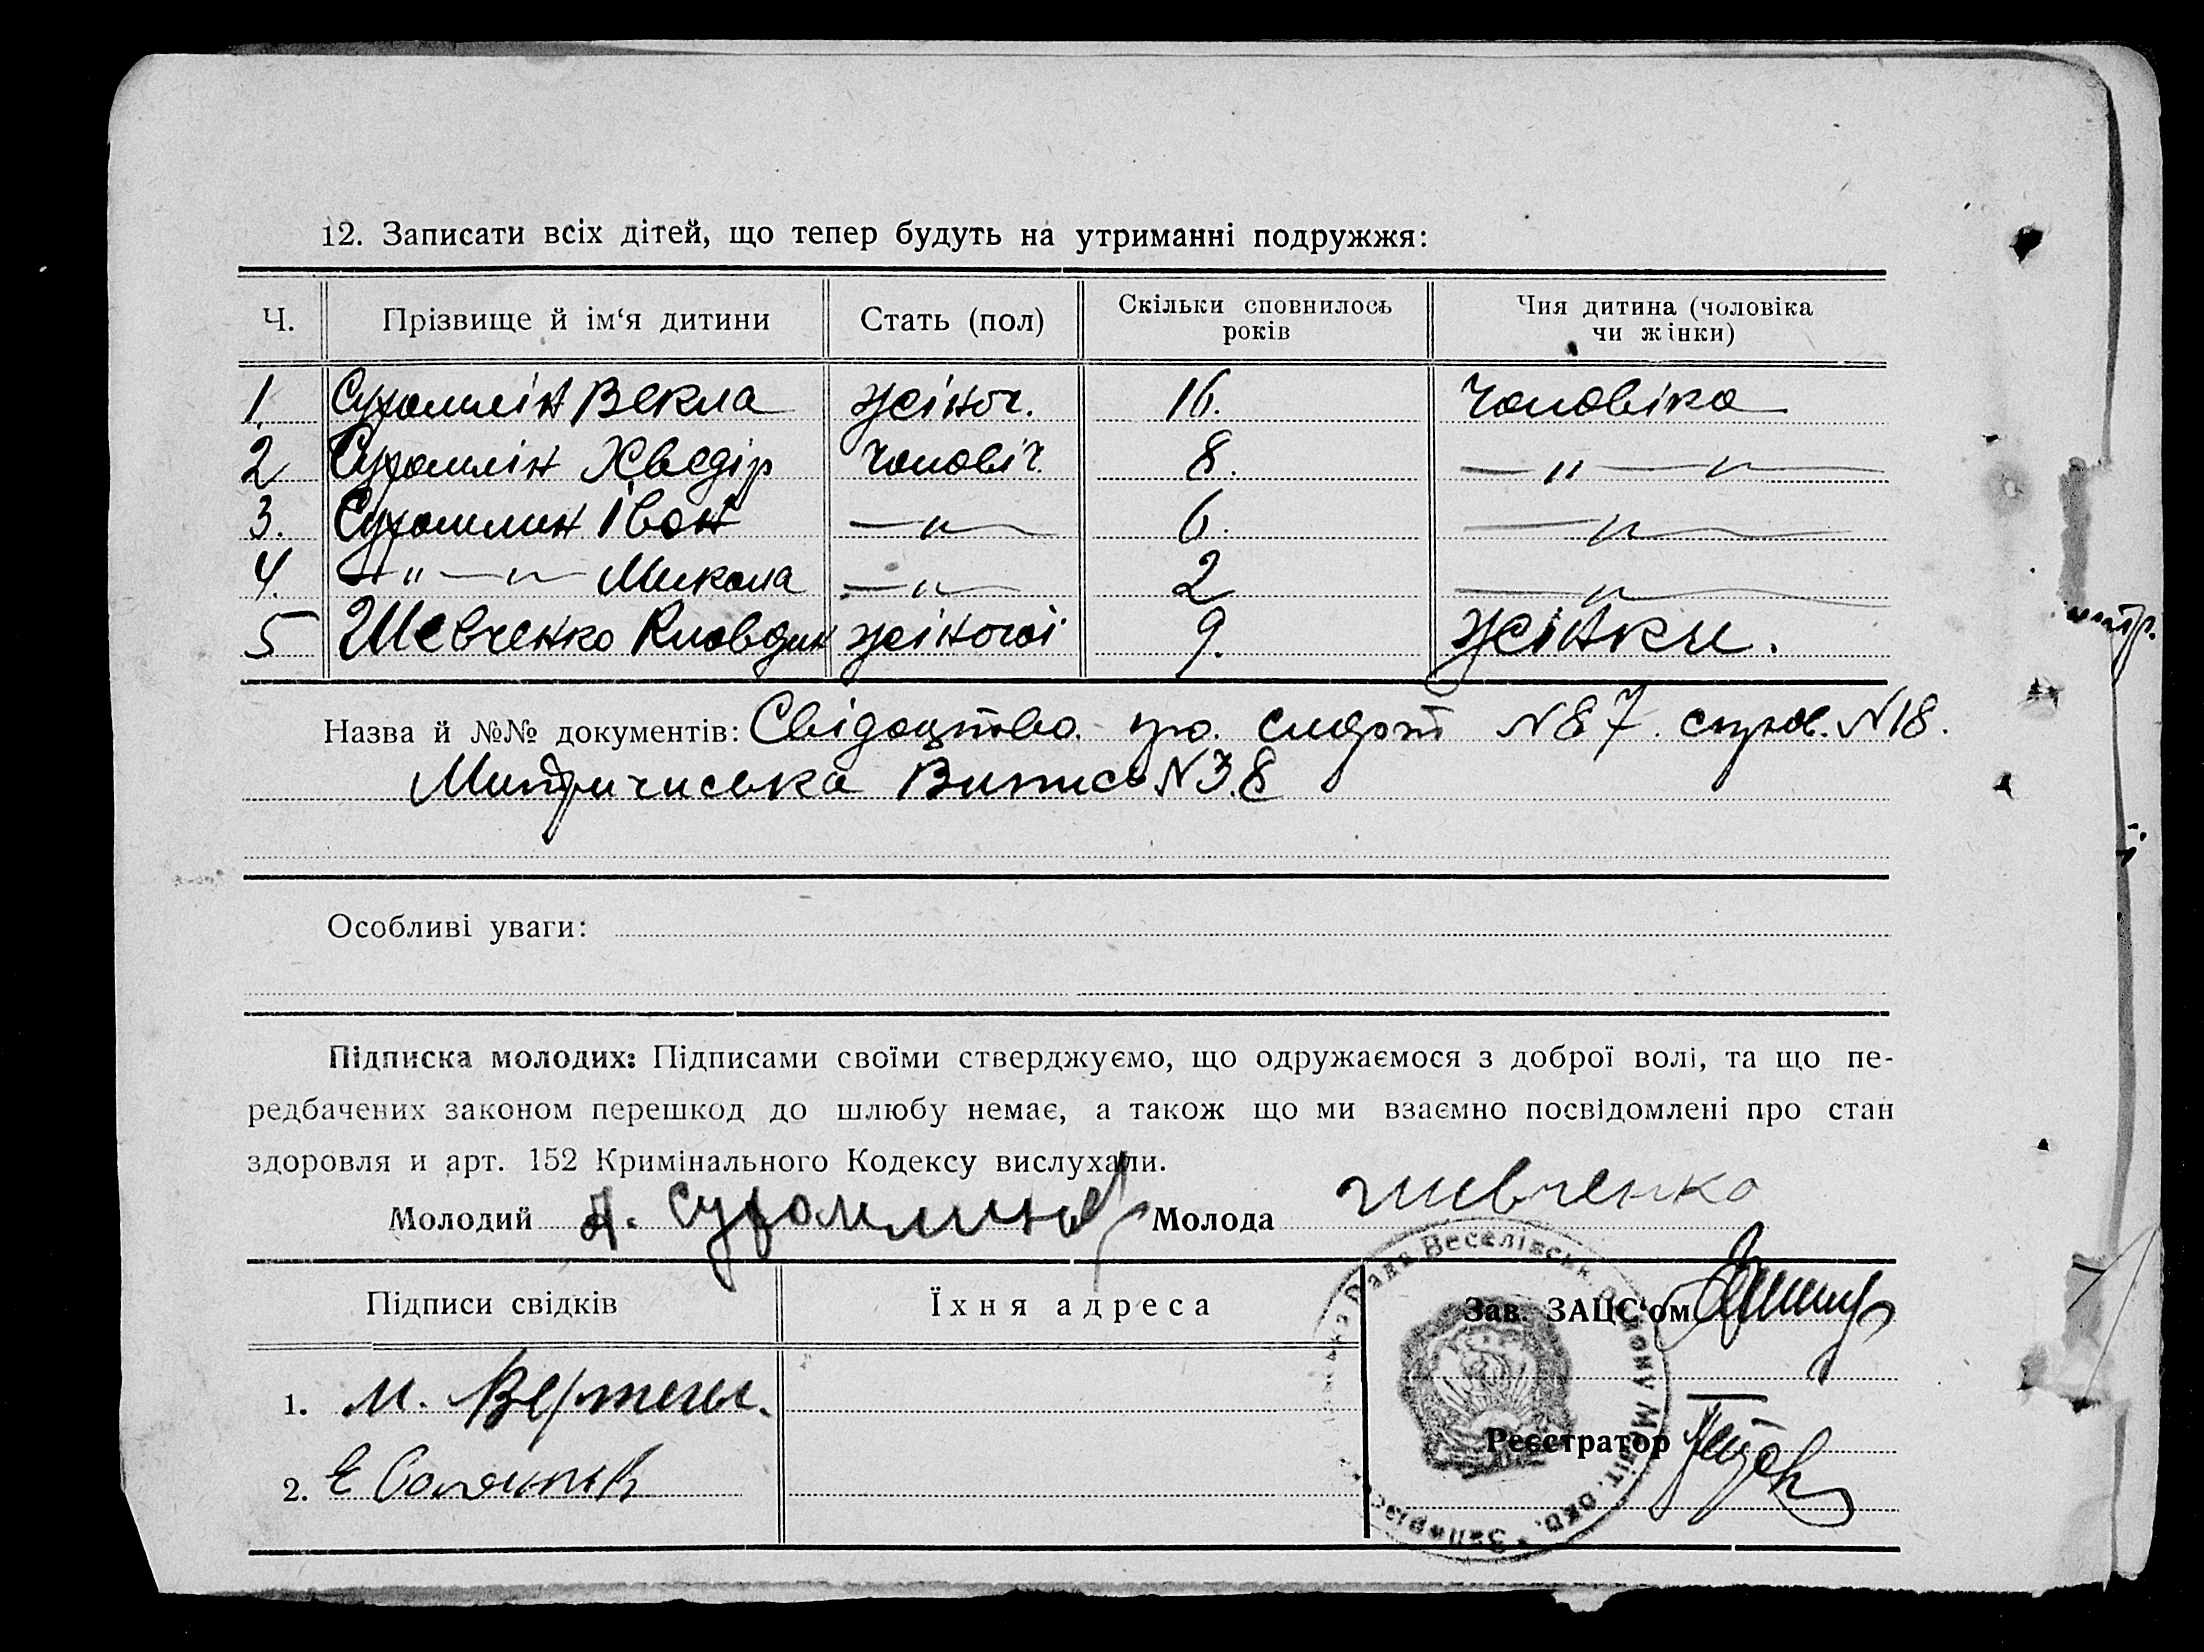 12. Записати всіх дітей, що тепер будуть на утриманні подружжя:
Ч. Прізвище й ім‘я дитини Стать (пол) Скільки сповнилось років Чия дитина (чоловіка чи жінки)
1. Сухомлін Векла жіноч. 16. Чоловіка
2 Сухомлін Хведір Чоловіч. 8. — " — " —
3. Сухомлин Іван — " — 6. — " —
4. — " — " — Микола — " — 2 — " —
5 Шевченко Клавдин жіночоі 9. жінки.
Назва й №№ документів: Свідоцтво про смерт N 87. справ. N 18.
Витпис N 38
Особливі уваги:
Підписка молодих: Підписами своїми стверджуємо, що одружаємося з доброї волі, та що пе-
редбачених законом перешкод до шлюбу немає, а також що ми взаємно посвідомлені про стан
здоровля и арт. 152 Кримінального Кодексу вислухали.
Молодий Сухомлинов Молода Шевченко
Підписи свідків Їхня адреса Зав. ЗАЦС‘ом
1. М.
Реєстратор
2. Е
Рада Веселівськ району Меліт. окр. Запоріз